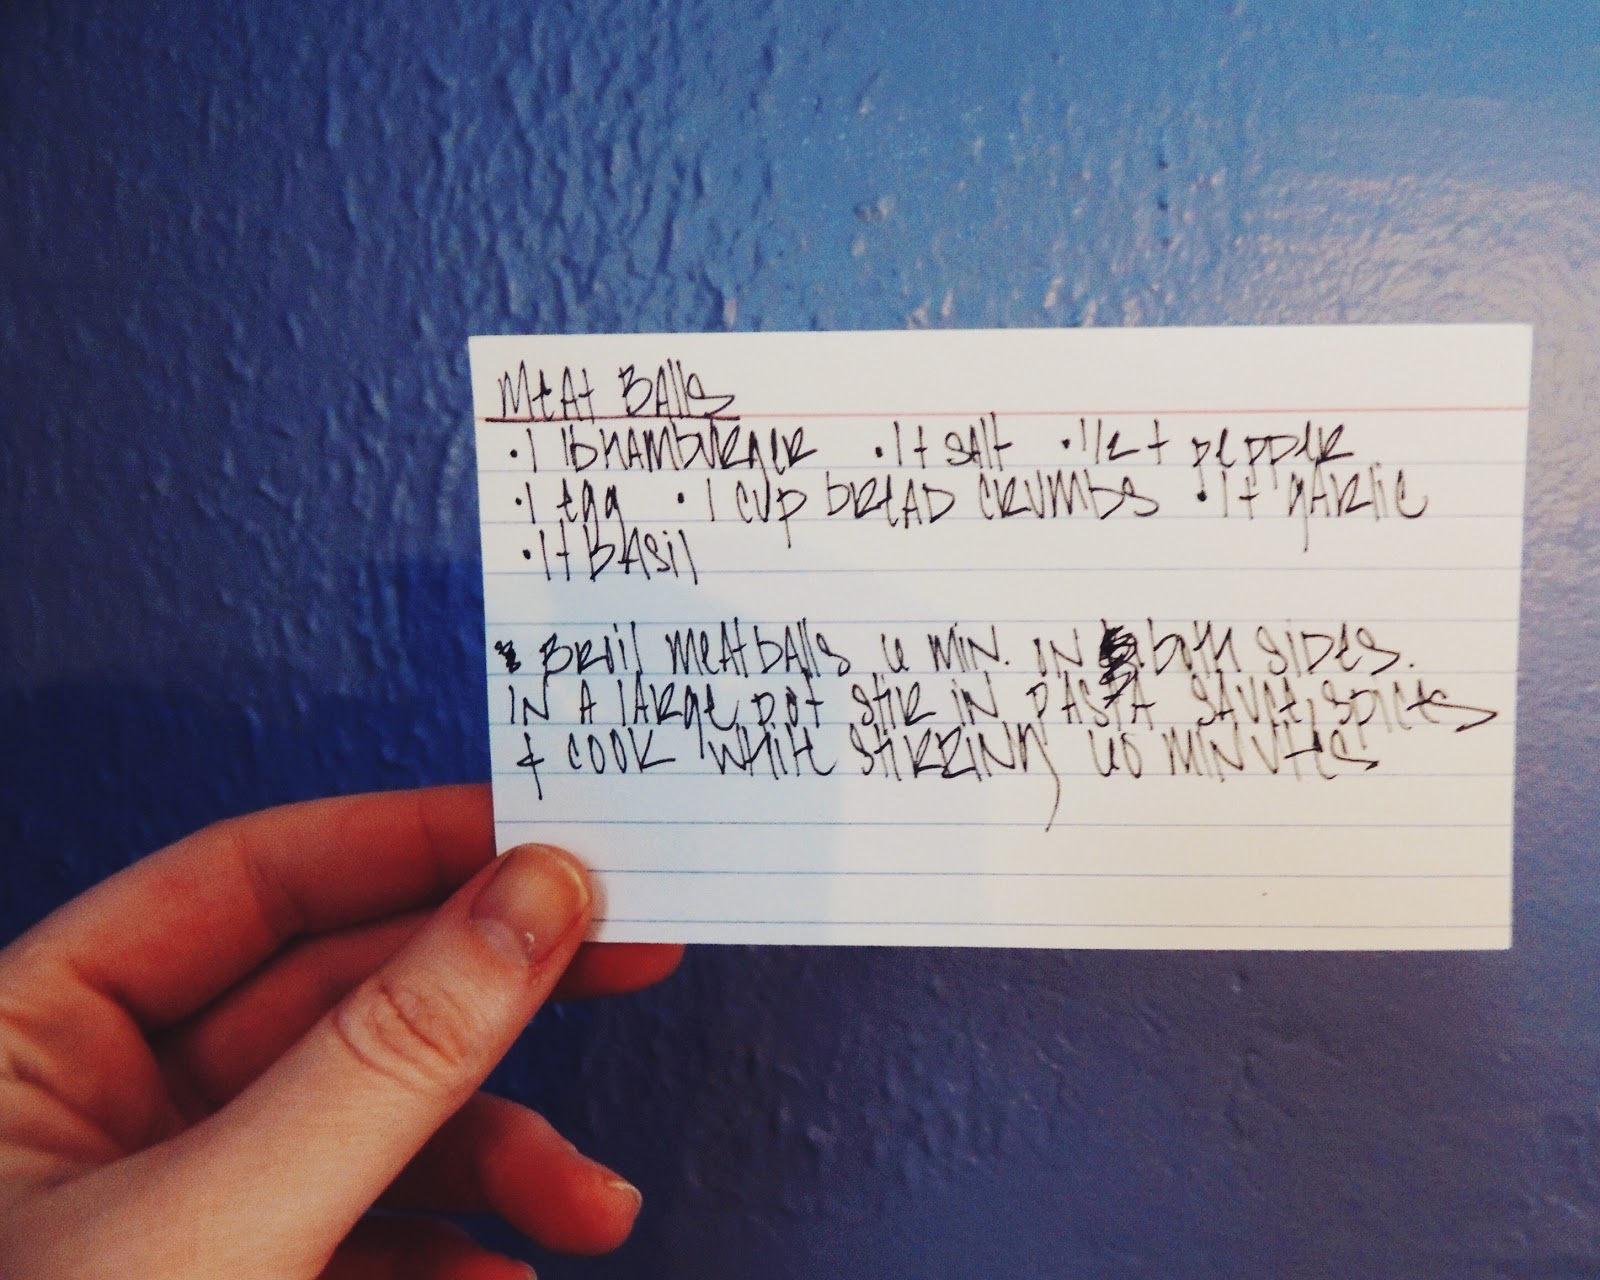 Meat Balls
• 1 lb hamburger • 1 t salt • 1/2 t pepper
• 1 egg • 1 cup bread crumbs • 1 t garlic
• 1 t Basil
Broil meatballs 6 min. on both sides.
In a large pot stir in pasta sauce, spices
& cook while stirring 60 minutes